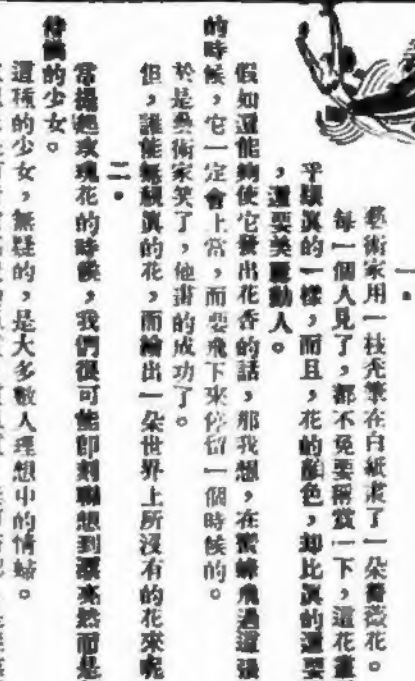 一.
藝術家用一枝禿筆在白紙了一朶薔薇花。
每一個人見了,都不免要稱賞一下,這花畫
乎跟真的一樣,而且,花的顏色,却比真的還要
,還要美麗動人。
假如還能夠使它發出花香的話,那我想,在蜜蜂飛過這張
的時候,它一定會上當,而要飛下來停留一個時候的。
於是藝術家笑了,他畫的成功了。
但,誰能無視真的花,而繪出一朶世界上所沒有的花來呢
二.
當提起玫瑰花的時候,我們很可能即刻聯想到漂亮然而是
的少女。
這種的少女,無疑的,是大多數人理想中的情婦。